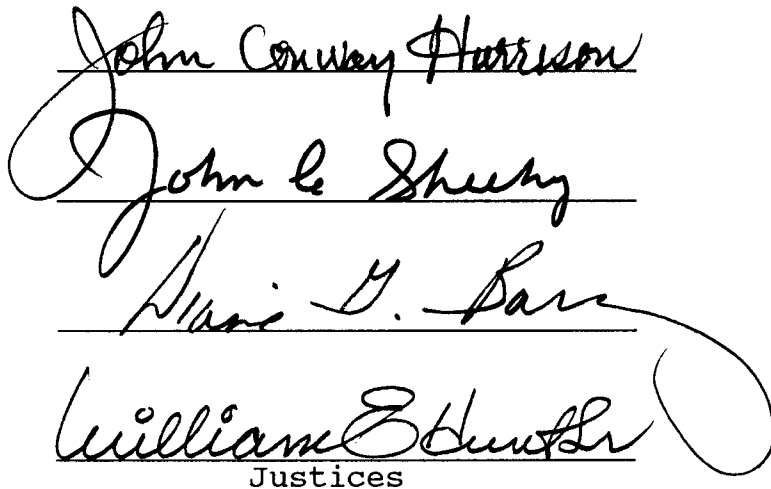 John Conway Harrison
John C Sheehy
Diane G. Barz
William E Hunt Sr
Justices